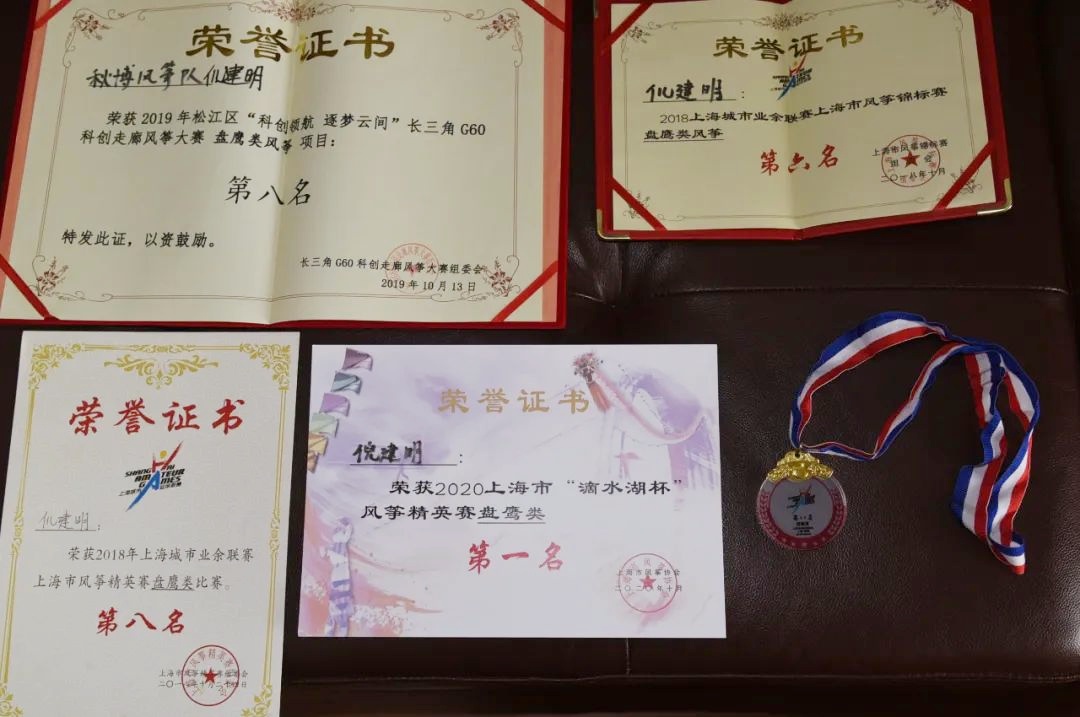 荣誉证书
秋博风筝队仉建明
荣获2019年松江区“科创领航 逐梦云间”长三角G60
科创走廊风筝大赛 盘鹰类风筝 项目：
第八名
特发此证，以资鼓励。
长三角G60科创走廊风筝大赛组委会
2019年10月13日
荣誉证书
仉建明：
2018上海城市业余联赛上海市风筝锦标赛
盘鹰类风筝
第六名
上海市风筝锦标赛
组委会
二〇一八年十月
荣誉证书
SHANGHAI
AMATEUR
GAMES
仉建明：
荣获2018年上海城市业余联赛
上海市风筝精英赛盘鹰类比赛。
第八名
荣誉证书
倪建明：
荣获2020上海市“滴水湖杯”
风筝精英赛盘鹰类
第一名
上海市风筝协会
二〇二〇年十月